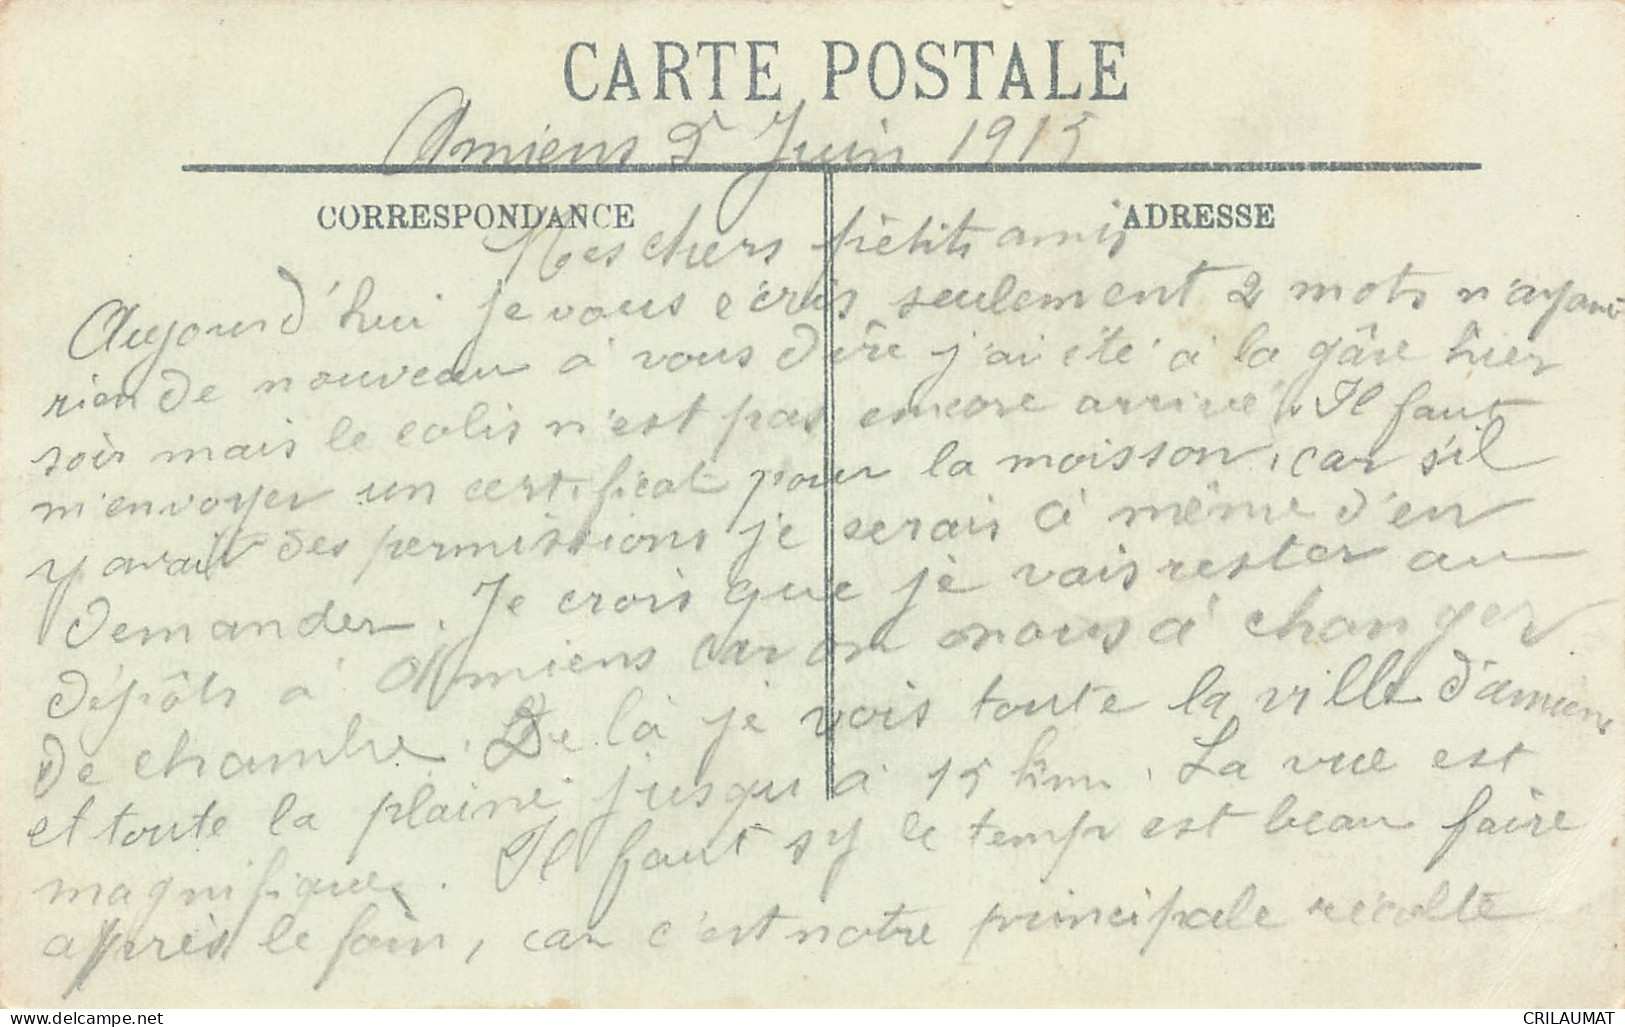 CARTE POSTALE
Amiens 2 Juin 1915
CORRESPONDANCE
ADRESSE
Mes chers petits amis
Aujourd'hui je vous écris seulement 2 mots n'ayant
rien de nouveau à vous dire j'ai été à la gâre hier
soir mais le colis n'est pas encore arrivé. Il faut
m'envoyer un certificat pour la moisson, car s'il
y avait des permissions je serais à même d'en
demander. Je crois que je vais rester au
dépôts à Amiens car on nous à changer
de chambre. De là je vois toute la ville d'Amiens
et toute la plaine jusqu'à 15 km. La vue est
magnifique. Il faut sy le temps est beau faire
après le foin, car c'est notre principale récolte
www.delcampe.net
CRILAUMAT